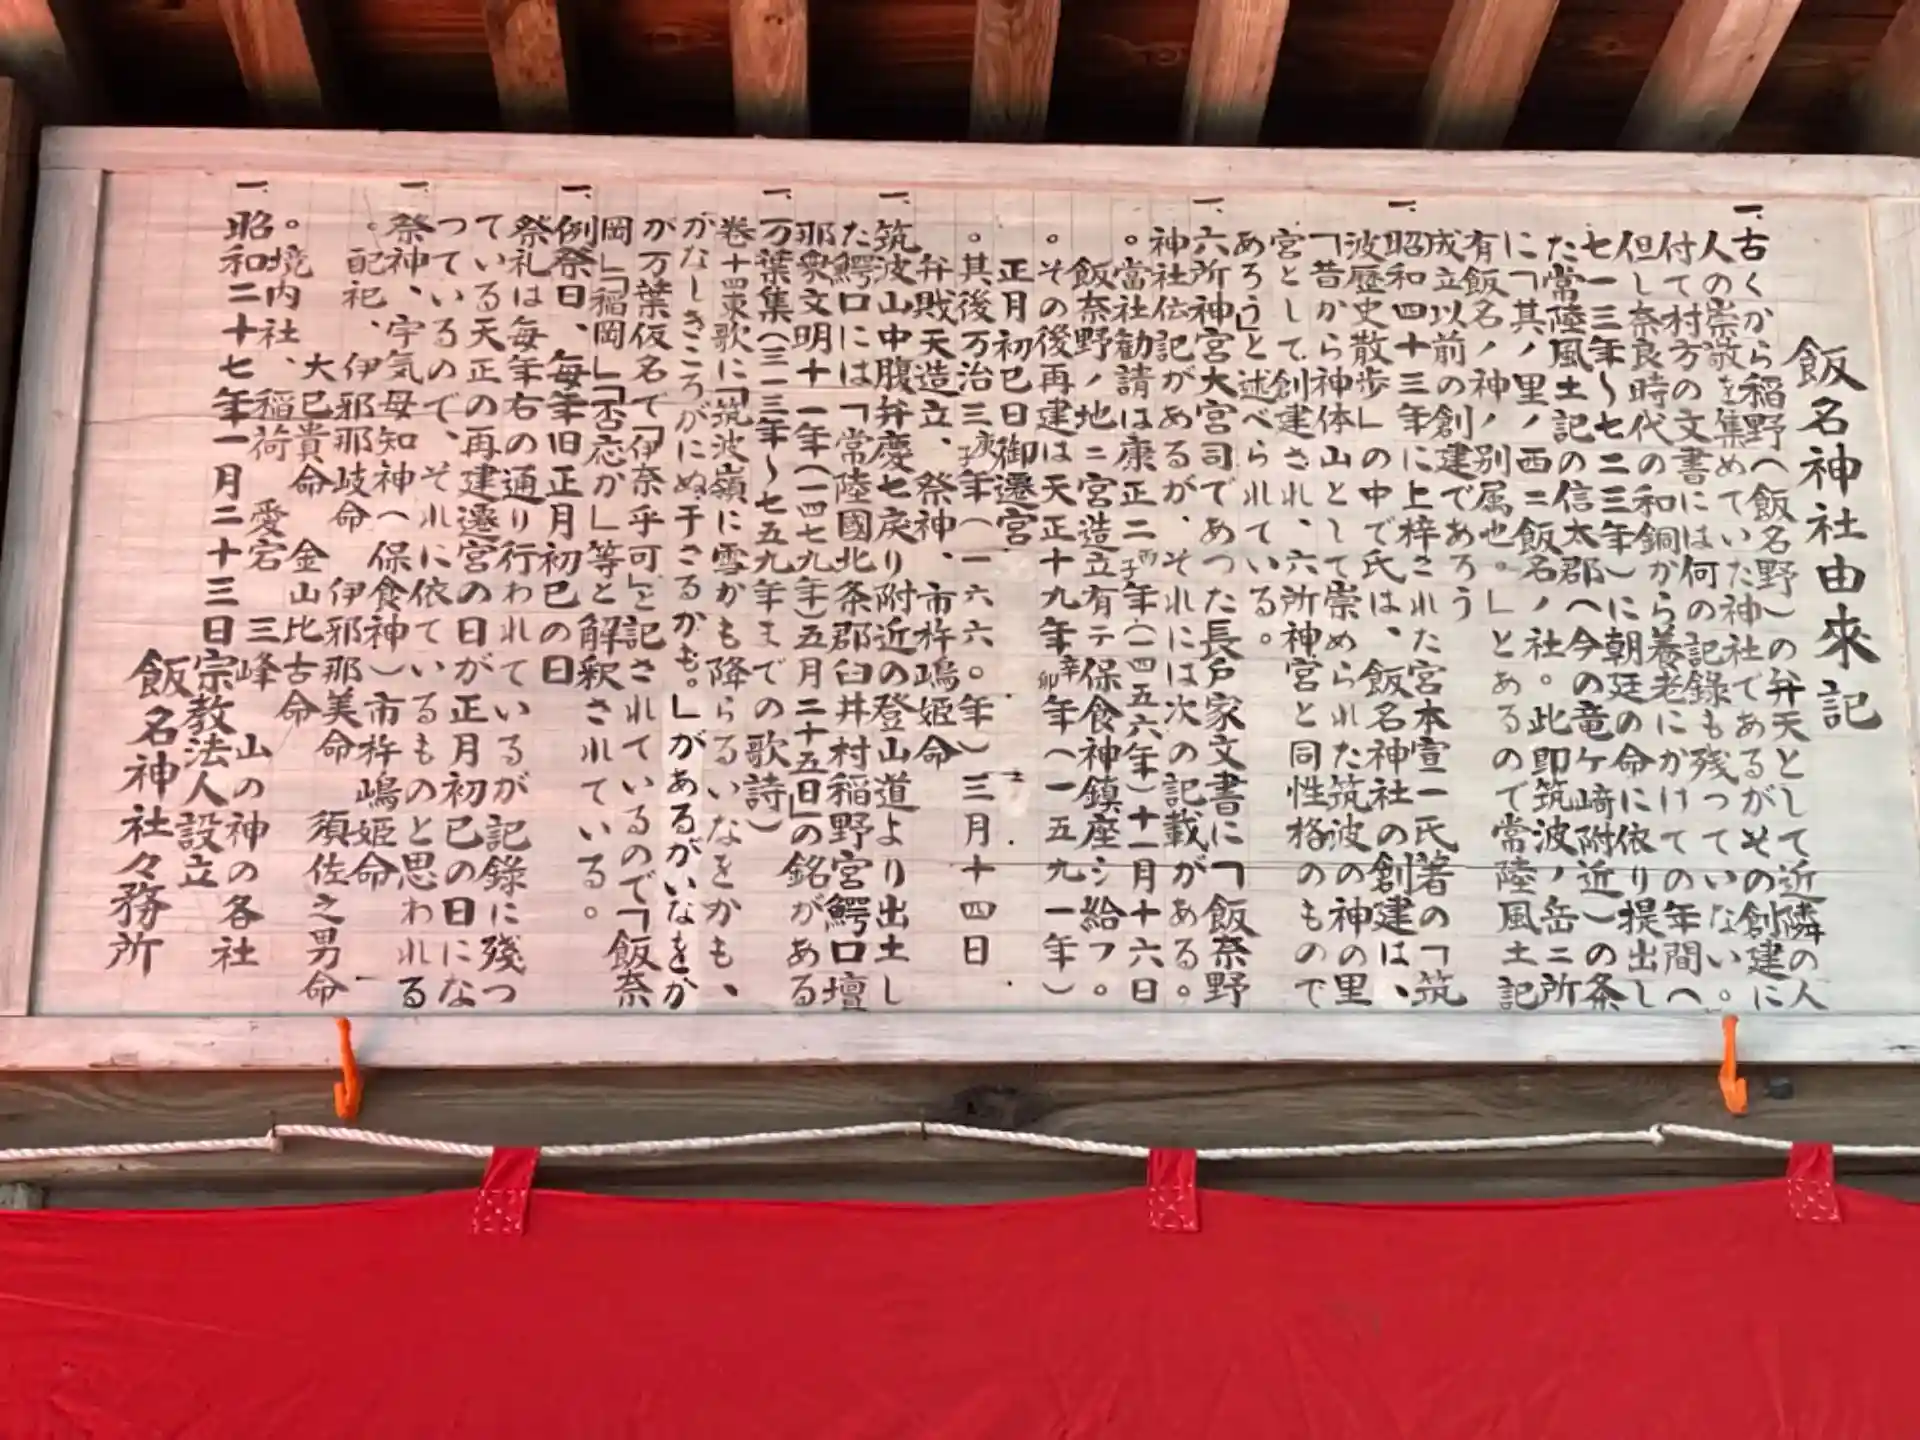 飯名神社由來記
一、古くから稲野へ(飯名野)の弁天として近隣の人
人の崇敬を集めていた神社であるがその創建に
付て村方の文書には何の記録も残っていない。
但し奈良時代の和銅から養老にかけての年間へ
七一三年〜七二三年)に朝廷の命に依り提出し
た常陸風土記の信太郡へ今の竜ケ崎附近)の条
に「其ノ里ノ西ニ飯名ノ社。此即筑波ノ岳ニ所
有飯名ノ神ノ別属也。」とあるので常陸風土記
成立以前の創建であろう
一、昭和四十三年に上梓された宮本宣一氏著の「筑
波歴史散歩」の中で氏は、飯名神社の創建は、
「昔から神体山として崇められた筑波の神の里
宮として創建され、六所神宮と同性格のもので
あろう」と述べられている。
一、六所神宮大宮司であつた長戸家文書に「飯奈野
神社伝記があるが、それには次の記載がある。
。當社勧請は康正二丙子年(一四五六年)十一月十六日
飯奈野ノ地ニ宮造立有テ保食神鎮座シ給フ。
。その後再建は天正十九年辛卯年へ一五九一年)
正月初巳日御遷宮
。其後万治三庚子年(一六六〇年)三月十四日
弁財天造立、祭神、市杵嶋姫命
一、筑波山中腹弁慶七戻り附近の登山道より出土し
た鰐口には「常陸國北条郡臼井村稲野宮鰐口壇
那衆文明十一年(一四七九年)五月二十五日」の銘がある
一、万葉集(三一三年〜七五九年までの歌詩)
巻十四東歌に「筑波嶺に雪かも降らるいなをかも、
がなしきころがにぬ干さるかも。」があるがいなをか
が万葉仮名で「伊奈乎可」と記されているので「飯奈
岡」「稲岡」「否応か」等と解釈されている。
一、例祭日、毎年旧正月初巳の日
祭礼は毎年右の通り行われているが記録に残つ
ている天正の再建遷宮の日が正月初巳の日にな
つているので、それに依ているものと思われる
一、祭神、宇気母知神へ保食神)市杵嶋姫命
。配祀、伊邪那岐命 伊邪那美命 須佐之男命
大己貴命 金山比古命
。境内社、稲荷 愛宕 三峰 山の神の各社
一、昭和二十七年一月二十三日宗教法人設立
飯名神社々務所